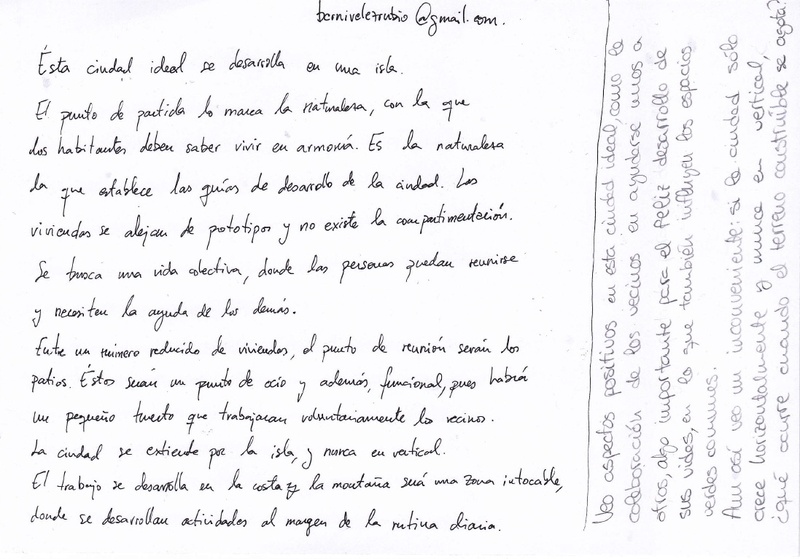 bernivelezrubio@gmail.com.
Ésta ciudad ideal se desarrolla en una isla.
El punto de partida lo marca la naturaleza, con la que
los habitantes deben saber vivir en armonía. Es la naturaleza
la que establece las guías de desarrollo de la ciudad. Las
viviendas se alejan de prototipos y no existe la compartimentación.
Se busca una vida colectiva, donde las personas puedan reunirse
y necesiten la ayuda de los demás.
Entre un número reducido de viviendas, el punto de reunión serán los
patios. Éstos serán un punto de ocio y además, funcional, pues habrá
un pequeño huerto que trabajaran voluntariamente los vecinos.
La ciudad se extiende por la isla, y nunca en vertical.
El trabajo se desarrolla en la costa y la montaña será una zona intocable,
donde se desarrollan actividades al margen de la rutina diaria.
Veo aspectos positivos en esta ciudad ideal, como la
colaboración de los vecinos en ayudarse unos a
otros, algo importante para el feliz desarrollo de
sus vidas, en lo que también influyen los espacios
verdes comunes.
Aun así veo un inconveniente: si la ciudad sólo
crece horizontalmente y nunca en vertical,
¿qué ocurre cuando el terreno construible se agota?